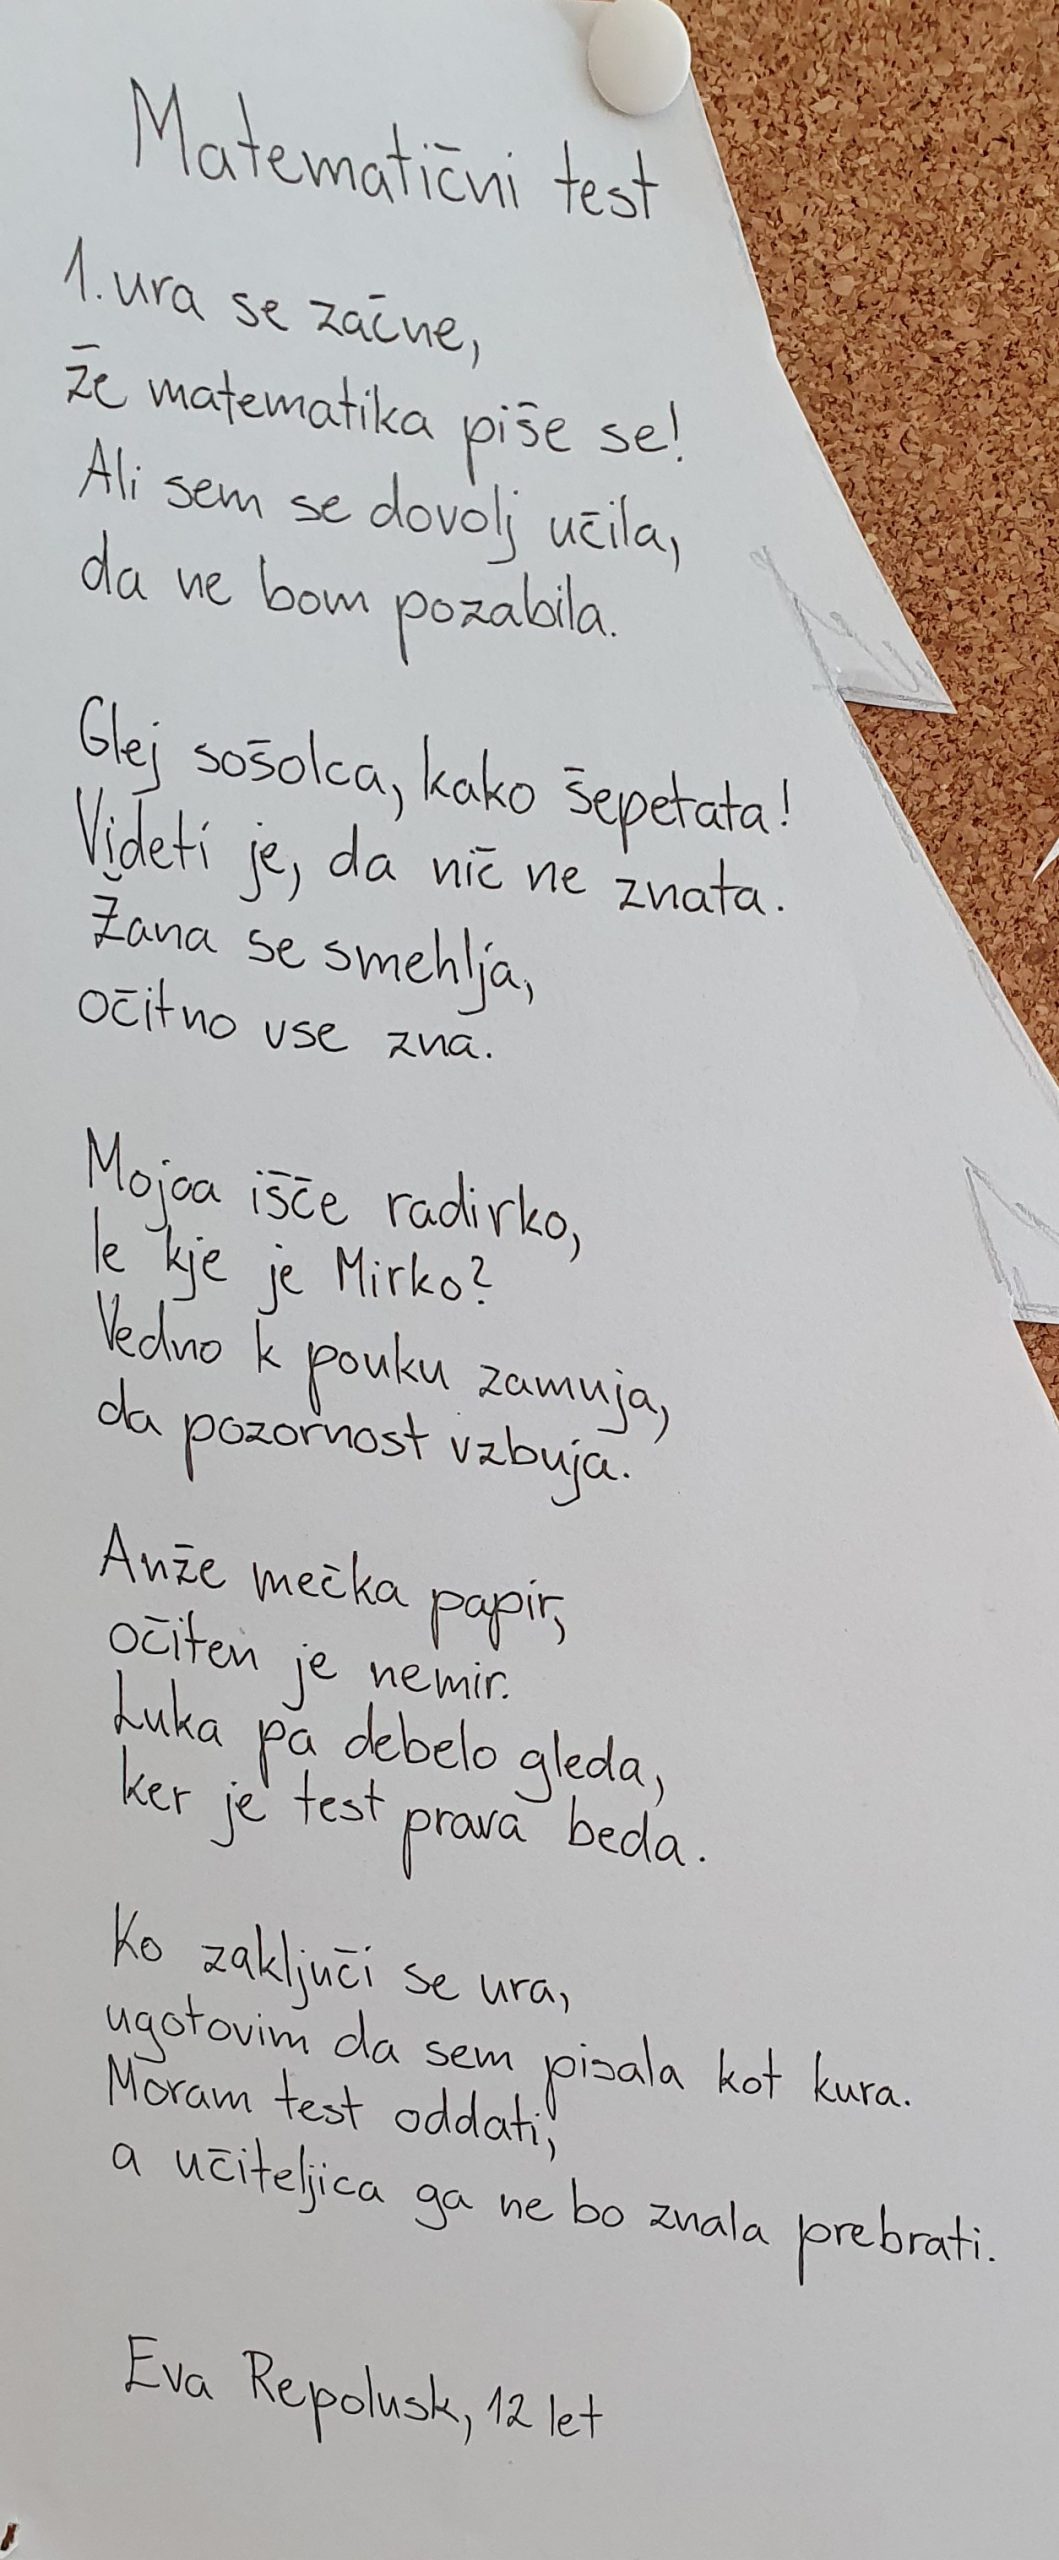 Matematični test
1. ura se začne,
že matematika piše se!
Ali sem se dovolj učila,
da ne bom pozabila.
Glej sošolca, kako šepetata!
Videti je, da nič ne znata.
Žana se smehlja,
očitno vse zna.
Mojca išče radirko,
le kje je Mirko?
Vedno k pouku zamuja,
da pozornost vzbuja.
Anže mečka papir,
očiten je nemir.
Luka pa debelo gleda,
ker je test prava beda.
Ko zaključi se ura,
ugotovim da sem pisala kot kura.
Moram test oddati,
a učiteljica ga ne bo znala prebrati.
Eva Repolusk, 12 let